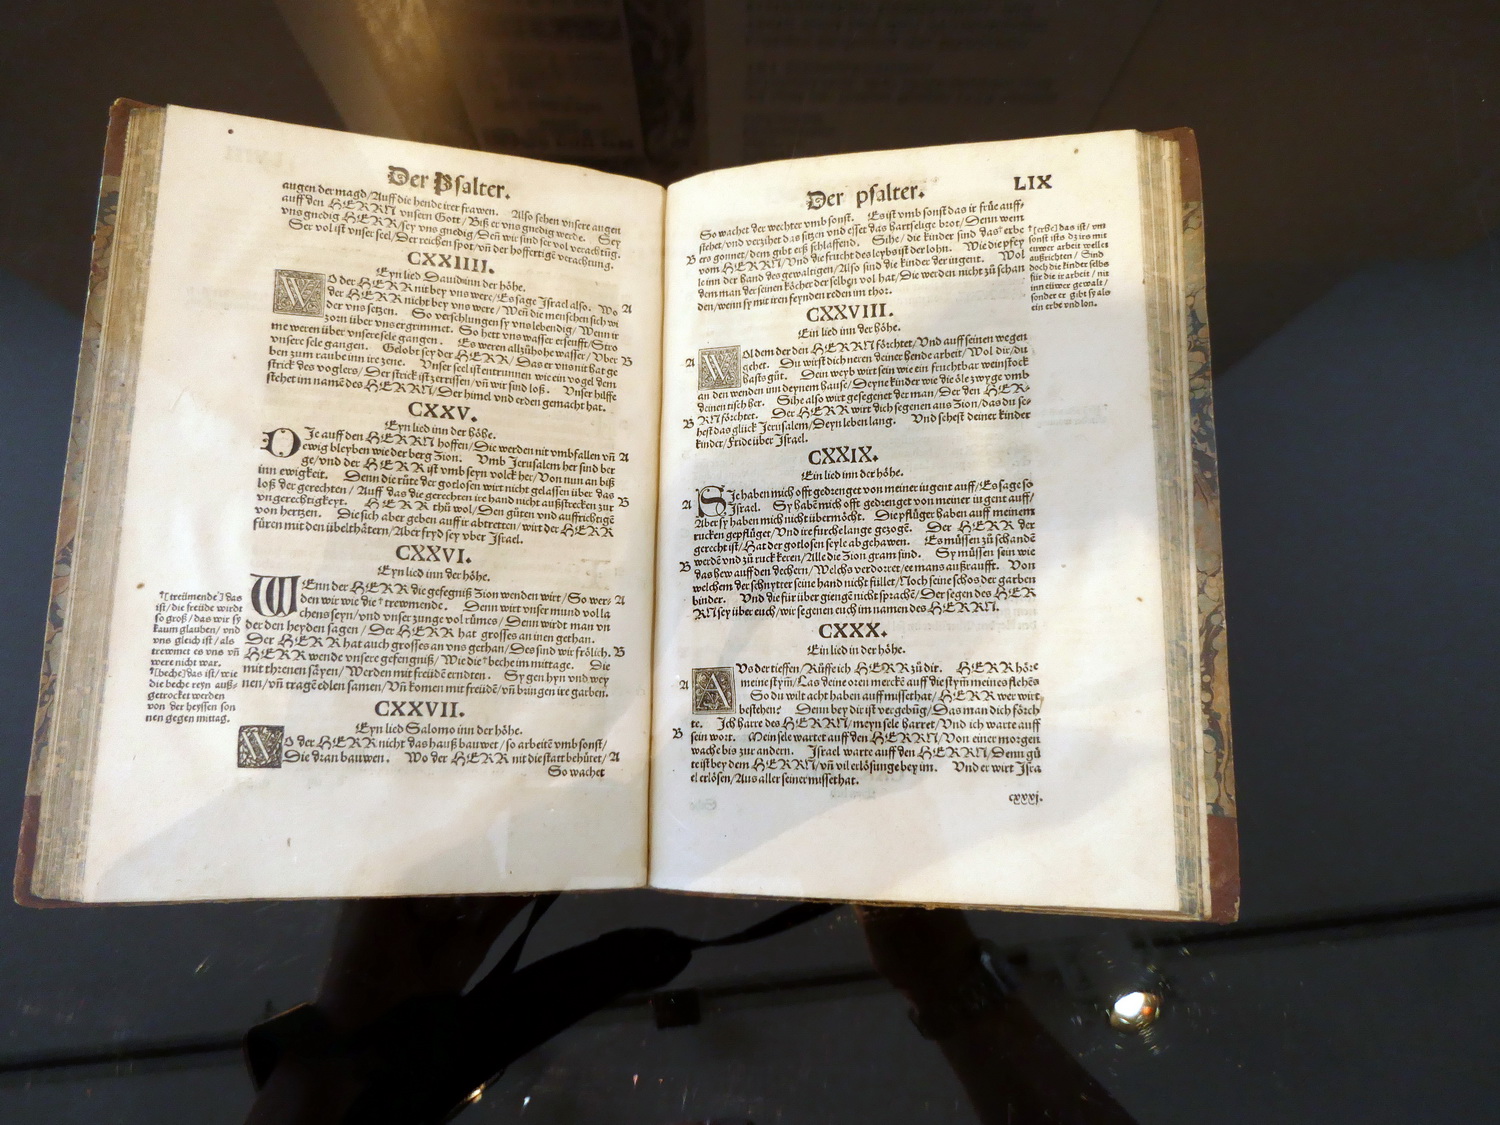 Der Psalter.
augen der magd/Auff die hende irer frawen. Also sehen vnsere augen
auff den HERRN vnsern Gott/Biß er vns gnedig werde. Sey
vns gnedig HERR/sey vns gnedig/Deñ wir sind ser vol verachtũg.
Ser vol ist vnser seel/Der reichen spot/vñ der hoffertigẽ verachtung.
CXXIIII.
Eyn lied Dauid inn der höhe.
WO der HERR nit bey vns were/Es sage Israel also. Wo A
der HERR nicht bey vns were/Weñ die menschen sich wi
der vns setzen. So verschlungen sy vns lebendig/Wenn ir
zorn über vns ergrimmet. So hett vns wasser ersenfft/Stro
me weren über vnsere sele gangen. Es weren allzühohe wasser/Vber B
vnsere sele gangen. Gelobt sey der HERR/Das er vns nit hat ge
ben zum raube inn ire zene. Vnser seel ist entrunnen wie ein vogel dem
strick des voglers/Der strick ist zerrissen/vñ wir sind loß. Vnser hilffe
stehet im namẽ des HERRN/Der himel vnd erden gemacht hat.
CXXV.
Eyn lied inn der höhe.
DJe auff den HERRN hoffen/Die werden nit vmbfallen vñ A
ewig bleyben wie der berg Zion. Vmb Jerusalem her sind ber
ge/vnd der HERR ist vmb seyn volck her/Von nun an biß
inn ewigkeit. Denn die rüte der gotlosen wirt nicht gelassen über das
loß der gerechten/Auff das die gerechten ire hand nicht außstrecken zur B
vngerechtigkeyt. HERR thü wol/Den güten vnd auffrichtigẽ
von hertzen. Die sich aber geben auff ir abtretten/wirt der HERR
füren mit den übelthätern/Aber fryd sey vber Jsrael.
CXXVI.
Eyn lied inn der höhe.
WEnn der HERR die gefegniß Zion wenden wirt/So wer- A
den wir wie die †trewmende. Denn wirt vnser mund vol la
chens seyn/vnd vnser zunge vol rümes/Denn wirdt man vn
der den heyden sagen/Der HERR hat grosses an inen gethan.
Der HERR hat auch grosses an vns gethan/Des sind wir frölich. B
HERR wende vnsere gefengniß/Wie die †beche im mittage. Die
mit threnen säyen/Werden mit freüdẽ erndten. Sy gen hyn vnd wey
nen/vñ tragẽ edlen samen/Vñ komen mit freüdẽ/vñ bringen ire garben.
†[treümende] das
ist/die freüde wirdt
so groß/das wir sy
kaum glauben/vnd
vns gleich ist/als
trewmet es vns vñ
were nicht war.
†[beche] das ist/wie
die beche reyn auß-
getrocket werden
von der heyssen son
nen gegen mittag.
CXXVII.
Eyn lied Salomo inn der höhe.
WO der HERR nicht das hauß bauwet/so arbeitẽ vmb sonst/
Die dran bauwen. Wo der HERR nit die statt behütet/ A
So wachet
Der psalter. LIX
So wachet der wechter vmb sonst. Es ist vmb sonst das ir früe auff-
stehet/vnd verzihet das sitzen vnd esset das hartselige brot/Denn wem
B ers gonnet/dem gibt erß schlaffend. Sihe/die kinder sind das †erbe
vom HERRN/Vnd die frucht des leybs ist der lohn. Wie die pfey
le inn der hand des gewaltigen/Also sind die kinder der iugent. Wol
dem man der seinen köcher der selbẽn vol hat/Die werden nicht zü schan
den/wenn sy mit iren feynden reden im thor.
†[erbe] das ist/vm
sonst ists dz irs mit
eüwer arbeit wellet
außrichten/Sind
doch die kinder selbs
für die ir arbeit/nit
inn eüwer gewalt/
sonder er gibt sy als
ein erbe vnd lon.
CXXVIII.
Ein lied inn der höhe.
A WOl dem der den HERRN förchtet/Vnd auff seinen wegen
gehet. Du wirst dich neren deiner hende arbeit/Wol dir/du
hasts güt. Dein weyb wirt sein wie ein fruchtbar weinstock
an den wenden vm deynem hause/Deyne kinder wie die öle zwyge vmb
deinen tisch her. Sihe also wirt gesegenet der man/Der den HER-
B RN förchtet. Der HERR wirt dich segenen aus Zion/das du se-
hest das glück Jerusalem/Deyn leben lang. Vnd sehest deiner kinder
kinder/Fride über Jsrael.
CXXIX.
Ein lied inn der höhe.
A SJe haben mich offt gedrenget von meiner iugent auff/Es sage so
Jsrael. Sy habẽ mich offt gedrenget von meiner iugent auff/
Aber sy haben mich nicht übermöcht. Die pflüger haben auff meinem
rucken gepflüger/Vnd ire furche lange gezogẽ. Der HERR der
gerecht ist/Hat der gotlosen seyle abgehawen. Es müssen zü schandẽ
B werdẽ vnd zü ruck keren/Alle die Zion gram sind. Sy müssen sein wie
das hew auff den dechern/Welchs verdorret/ee mans außraufft. Von
welchem der schnytter seine hand nicht füllet/Noch seine schos der garben
binder. Vnd die für über giengẽ nicht sprachẽ/Der segen des HER
RN sey über euch/wir segenen euch im namen des HERRN.
CXXX.
Ein lied in der höhe.
A AVs der tieffen/Rüffe ich HERR zü dir. HERR höre
meine stym̃/Las deine oren merckẽ auff die stym̃ meines flehẽs
So du wilt acht haben auff missethat/HERR wer wirt
bestehen? Denn bey dir ist vergebũg/Das man dich förch
te. Jch harre des HERRN/meyn sele harret/Vnd ich warte auff
B sein wort. Mein sele wartet auff den HERRN/Von einer morgen
wache bis zur andern. Jsrael warte auff den HERRN/Denn gü
te ist bey dem HERRN/vñ vil erlösunge bey im. Vnd er wirt Jsra
el erlösen/Aus aller seiner missethat.
cxxxj.